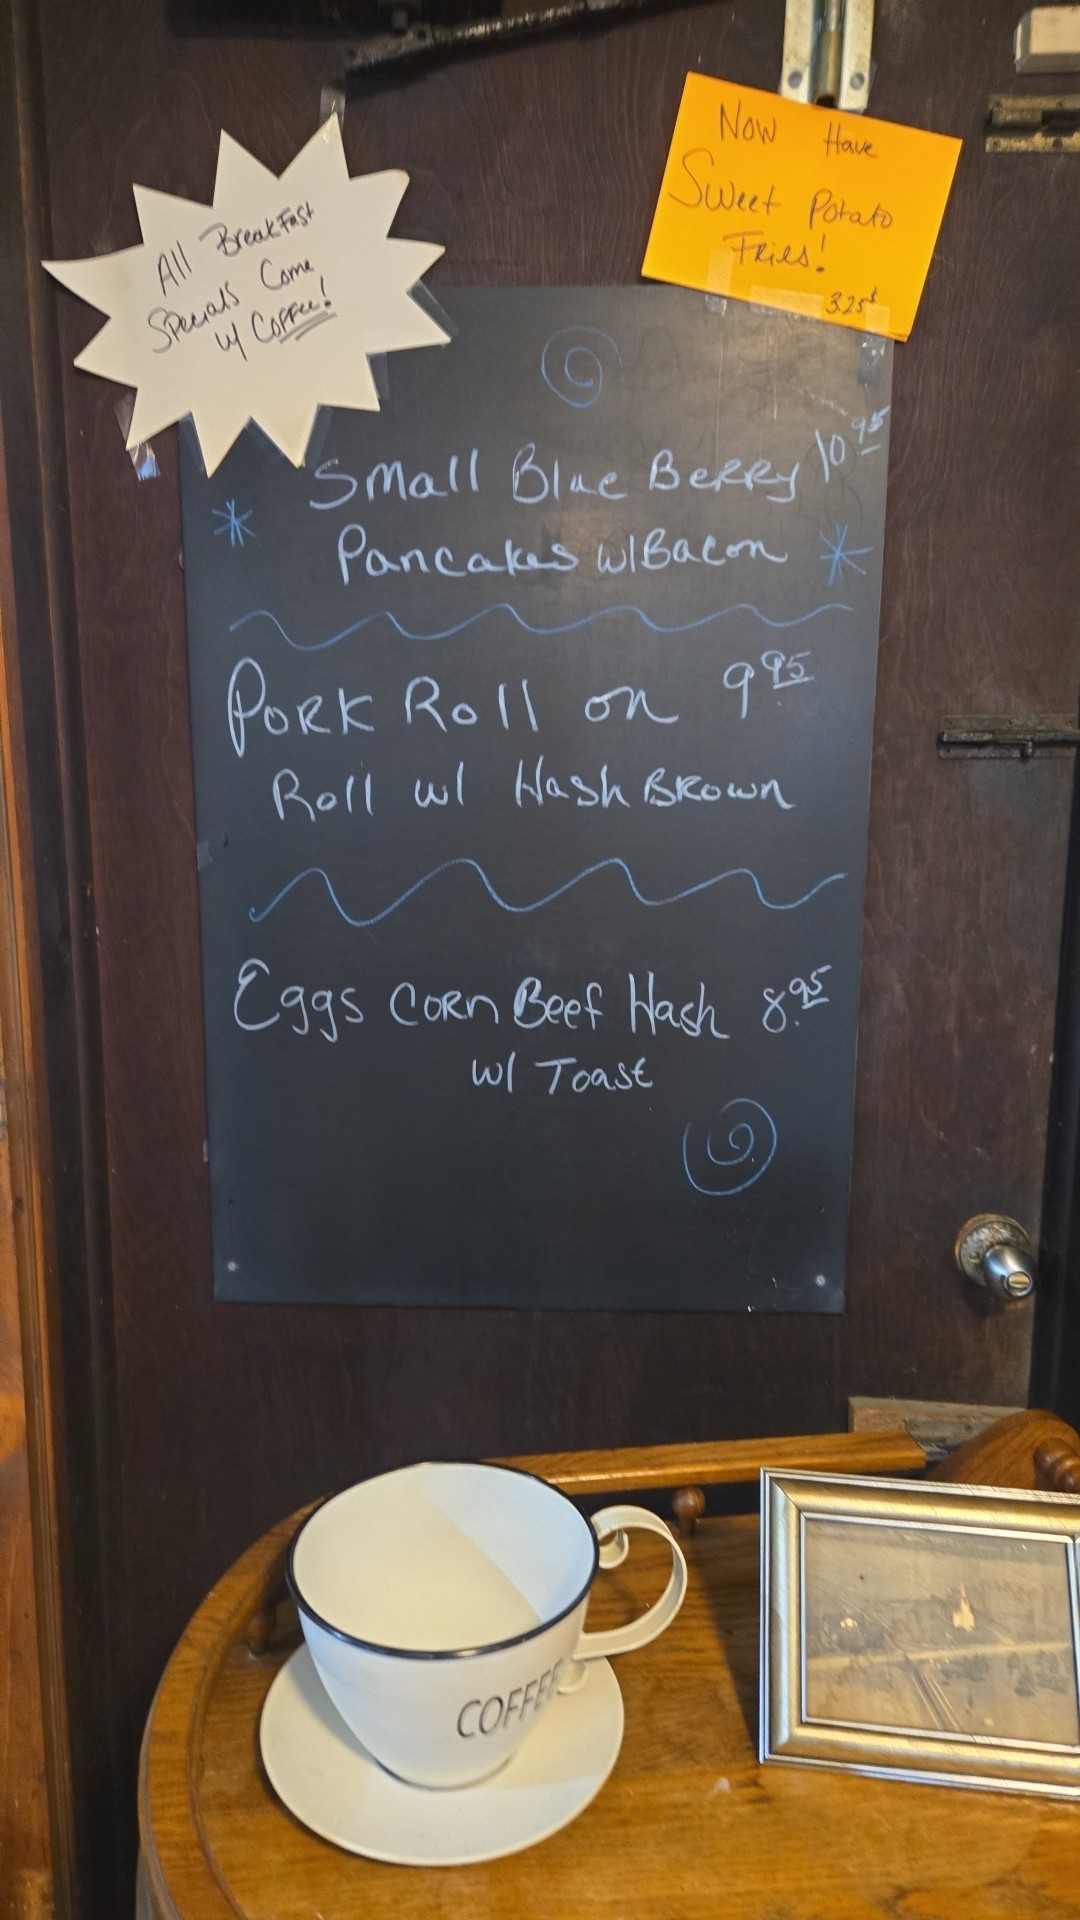 All BreakFast
Specials Come
w/ Coffee!
Now Have
Sweet Potato
Fries!
3.25¢
Small Blue Berry 10 95
Pancakes w/Bacon
Pork Roll on 9.95
Roll w/ Hash Brown
Eggs Corn Beef Hash 8.95
w/ Toast
COFFEE